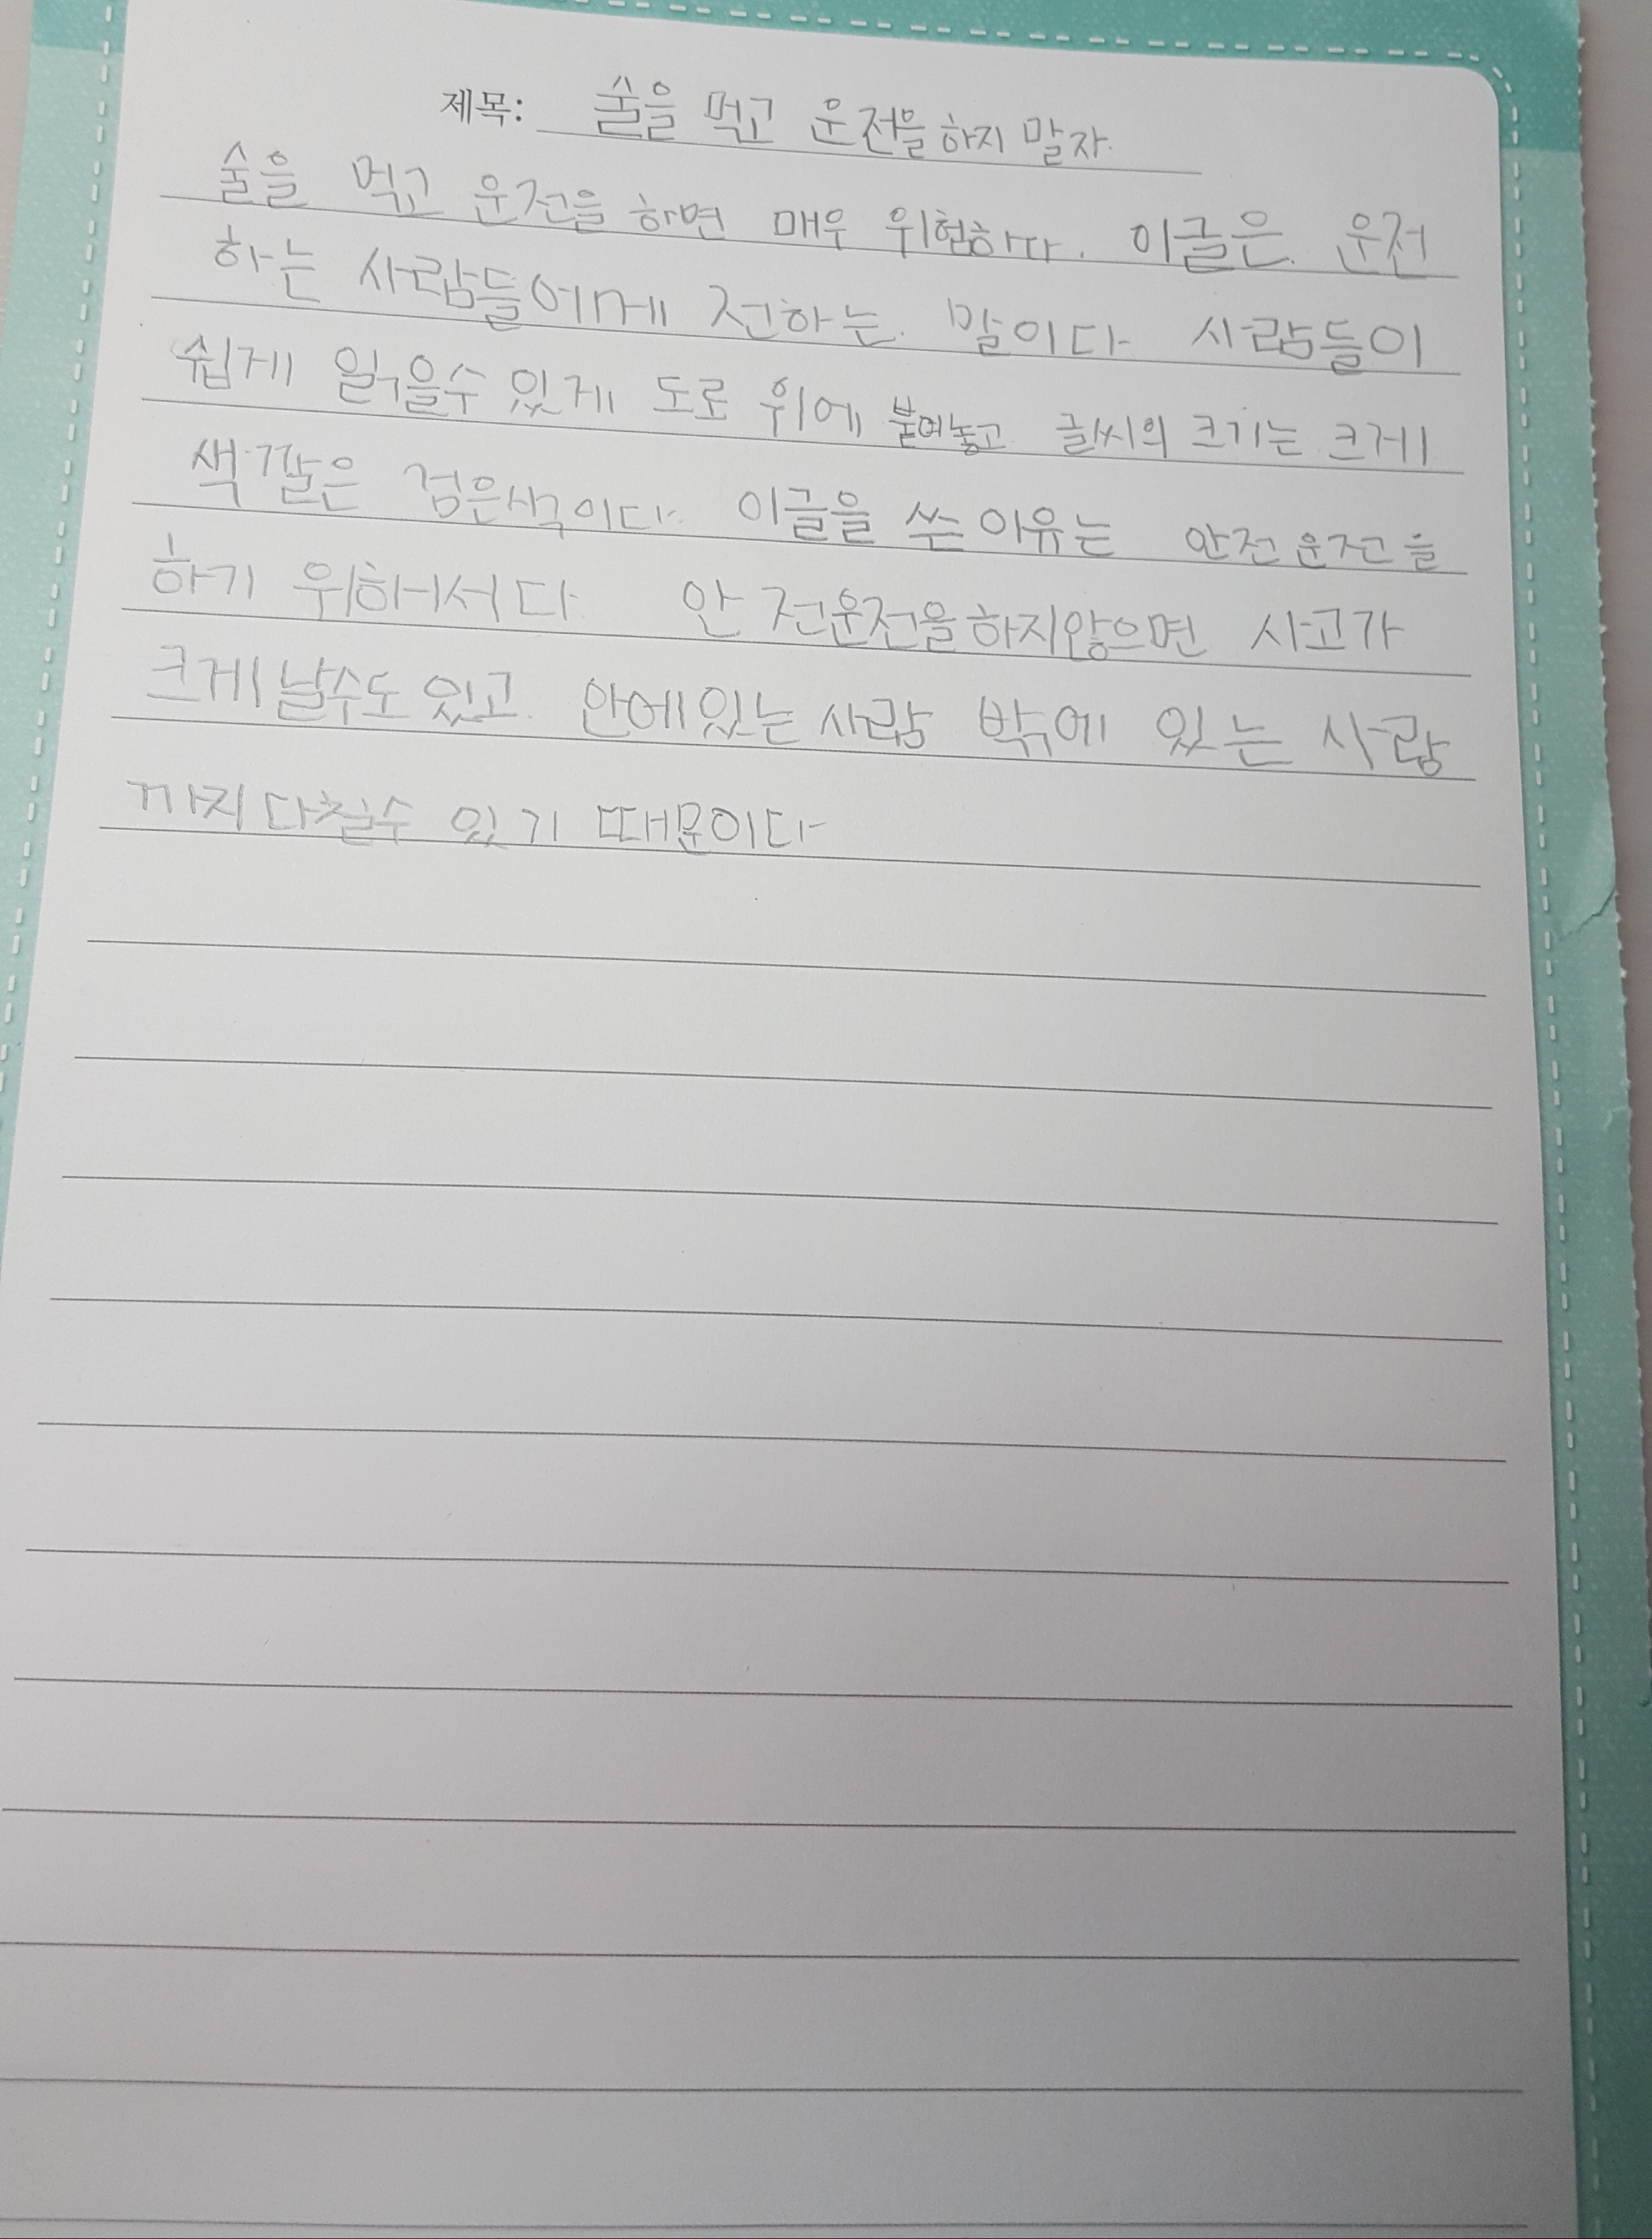 제목: 술을 먹고 운전을 하지 말자.
술을 먹고 운전을 하면 매우 위험하다. 이글은 운전
하는 사람들에게 전하는 말이다 사람들이
쉽게 읽을수 있게 도로 위에 붙여놓고 글씨의 크기는 크게
색깔은 검은색이다. 이글을 쓴 이유는 안전운전을
하기 위해서다 안전운전을하지않으면 사고가
크게날수도있고 안에있는 사람 밖에 있는 사람
까지 다칠수 있기 때문이다